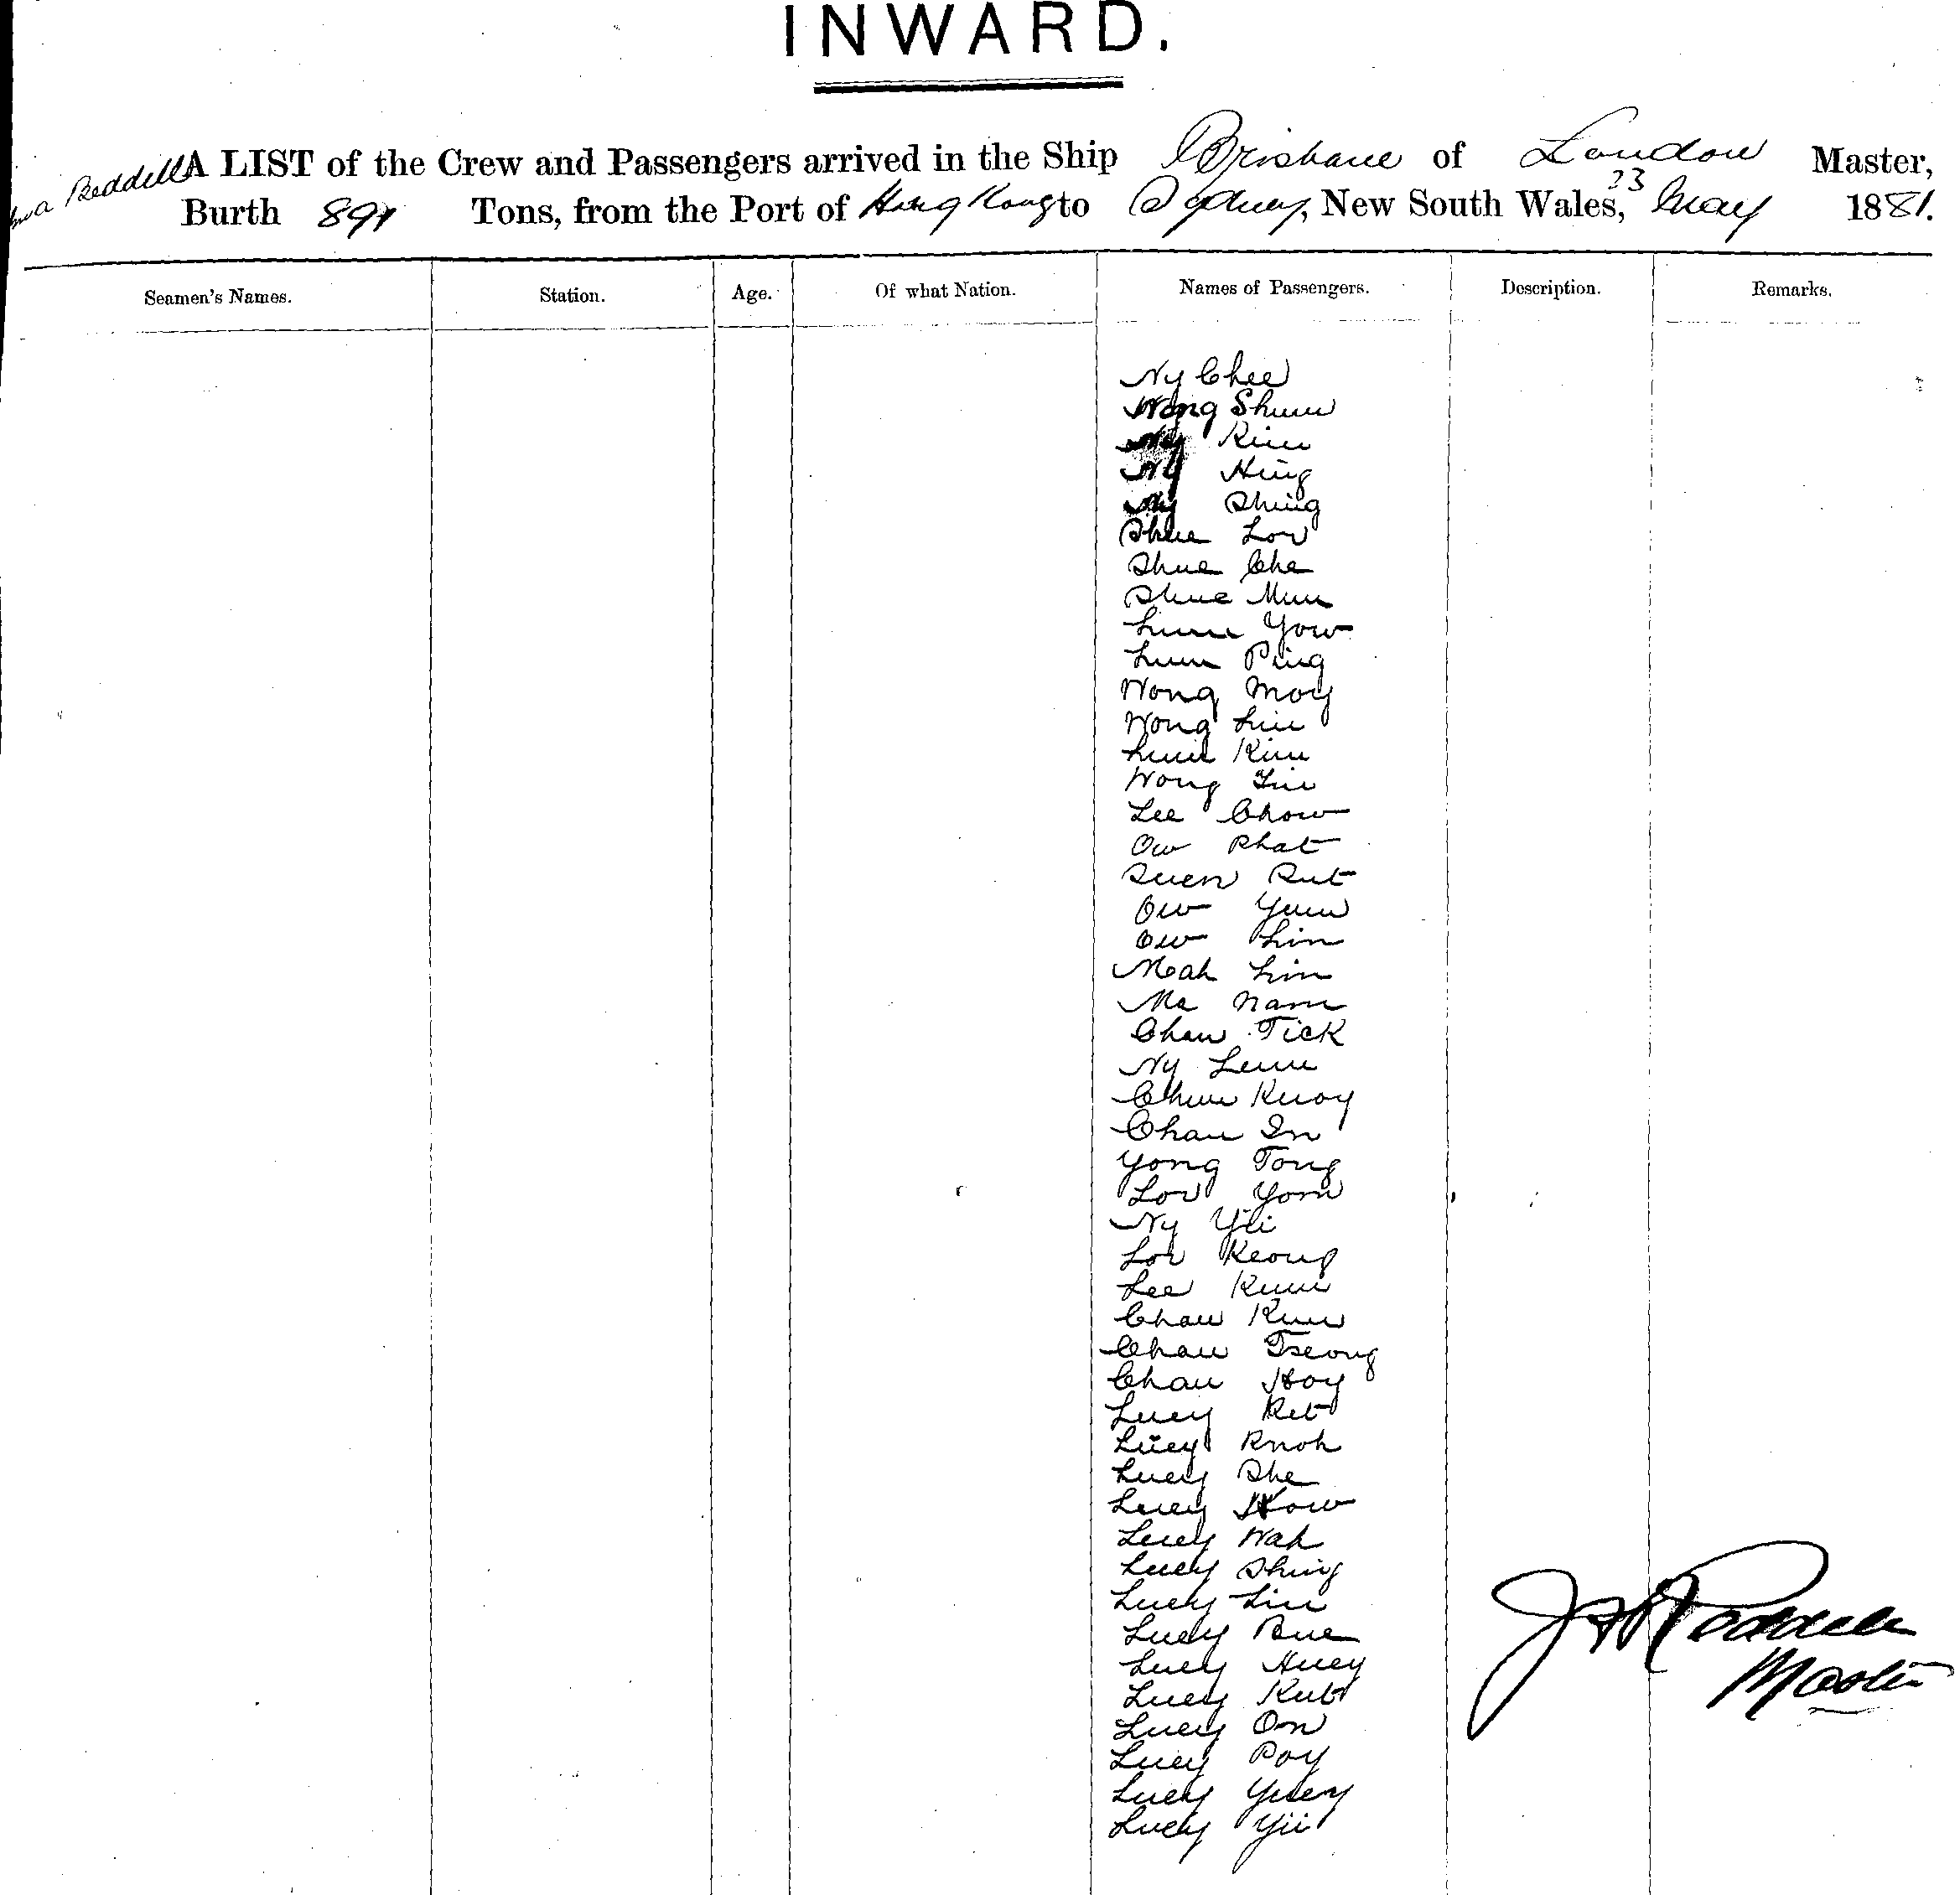 INWARD.
Reddell A LIST of the Crew and Passengers arrived in the Ship Brisbane of London Master,
Burth 891 Tons, from the Port of Hong Kong to Sydney, New South Wales, 23 May 1881.
Seamen's Names. Station. Age. Of what Nation. Names of Passengers. Description. Remarks.
Ny Chee
Wong Shum
Ny Kim
Ny Hing
Ny Shing
Shue Low
Shue Che
Shue Mun
Lum Yow
Lum Ping
Wong Moy
Wong Lin
Lum Kim
Wong
Lee Chow
Ow Phat
Suen Sut
Ow Yum
Ow Lin
Moah Lin
Ma Nam
Chaw Tick
Ny Leun
Chun Kuoy
Chan In
Yong Tong
Low Yom
Ny Yii
Low Keong
Lee Kum
Chaw Kum
Chau Tseong
Chau Hoy
Luey Ket
Luey Knoh
Luey She
Luey How
Luey Wah
Luey Shing
Luey Lin
Luey Sue
Luey Huey
Luey Kut
Luey On
Luey Poy
Luey Yuey
Luey Yii
Reddell
Master